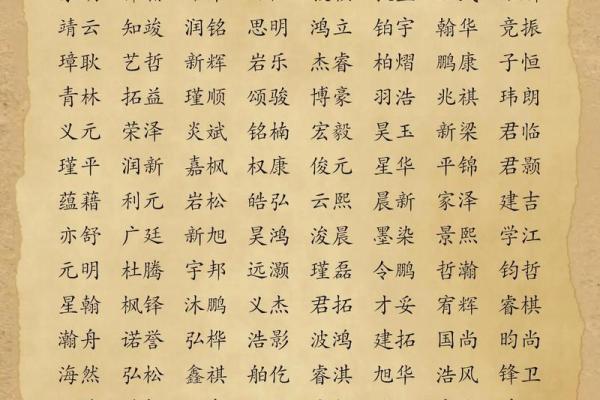 靖云 知竣 润铭 思明 鸿立 铂宇 翰华 竞振
璋耿 艺哲 新辉 岩乐 杰睿 柏熠 鹏康 子恒
青林 拓益 瑾顺 颂骏 博豪 羽浩 兆祺 玮朗
义元 荣泽 炎斌 铭楠 宏毅 昊玉 新梁 君临
瑾平 润新 嘉枫 权康 俊元 星华 平锦 君颢
蕴藉 利元 岩松 皓弘 云熙 晨新 家泽 建吉
亦舒 广廷 新旭 昊鸿 浚晨 墨染 景熙 学江
元明 杜腾 宇邦 远灏 瑾磊 令鹏 哲瀚 钧哲
星翰 枫铎 沐鹏 义杰 君拓 才妥 宥辉 睿棋
瀚舟 诺誉 弘桦 浩影 波鸿 建拓 国尚 昀尚
海然 弘松 鑫祺 舶仡 睿淇 旭华 浩风 锋卫